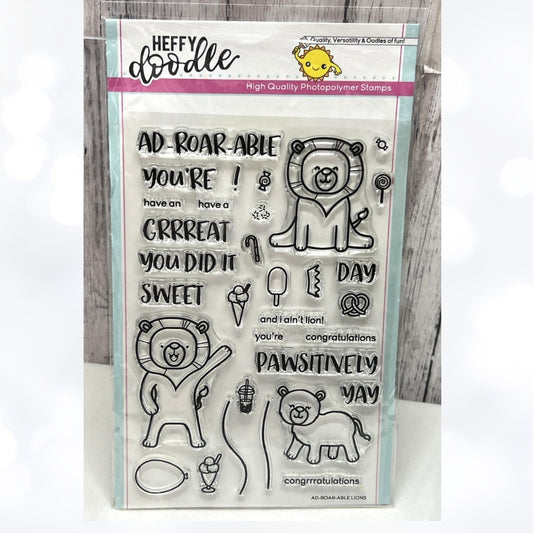 HEFFY
doodle
Quality, Versatility & Oodles of fun!
High Quality Photopolymer Stamps
AD-ROAR-ABLE
YOU'RE !
have an have a
GRRREAT
YOU DID IT
DAY
SWEET
and i ain't lion!
you're congratulations
PAWSITIVELY
YAY
congrrratulations
AD-ROAR-ABLE LIONS